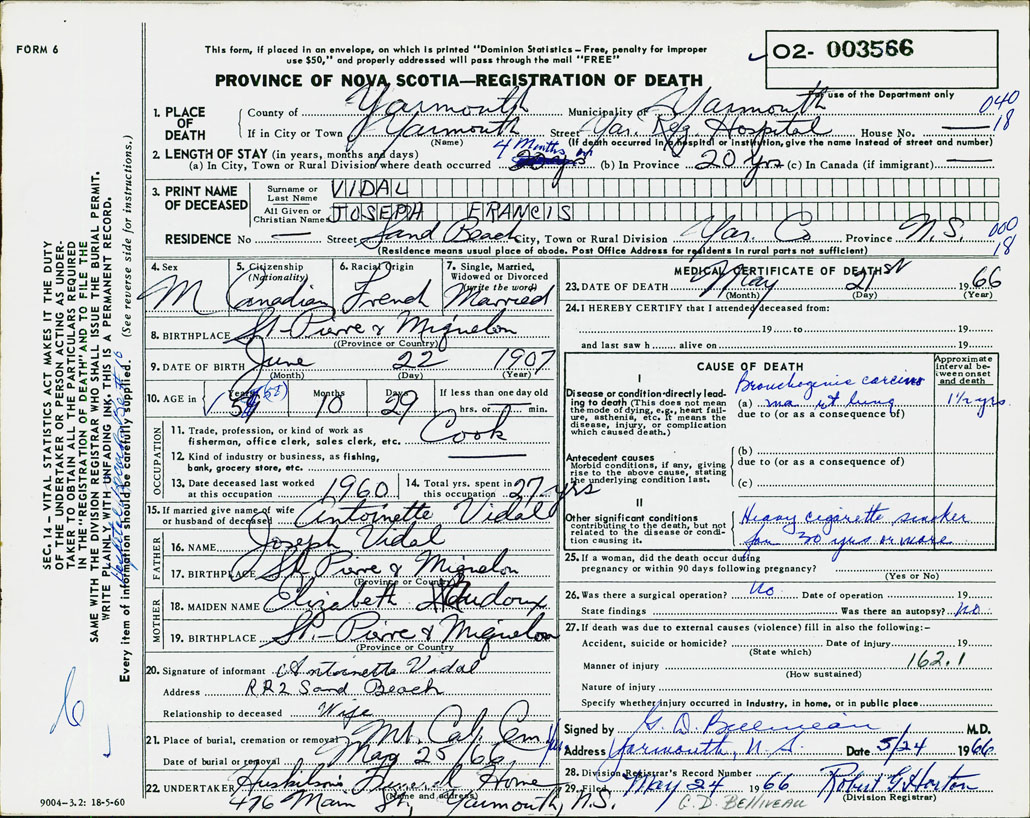 FORM 6
This form, if placed in an envelope, on which is printed "Dominion Statistics – Free, penalty for improper
use $50," and properly addressed will pass through the mail "FREE"
PROVINCE OF NOVA SCOTIA—REGISTRATION OF DEATH
02- 003566
For use of the Department only
040
18
1. PLACE OF DEATH
County of Yarmouth Municipality of Yarmouth
If in City or Town Yarmouth Street Yar. Reg Hospital House No. —
(Name) (If death occurred in a hospital or institution, give the name instead of street and number)
2. LENGTH OF STAY (in years, months and days) 4 Months
(a) In City, Town or Rural Division where death occurred (b) In Province 20 yrs (c) In Canada (if immigrant) —
3. PRINT NAME OF DECEASED
Surname or Last Name VIDAL
All Given or Christian Names JOSEPH FRANCIS
RESIDENCE No — Street Sand Beach City, Town or Rural Division Yar. Co Province N.S.
000
18
(Residence means usual place of abode. Post Office Address for residents in rural parts not sufficient)
4. Sex M
5. Citizenship (Nationality) Canadian
6. Racial Origin French
7. Single, Married, Widowed or Divorced (write the word) Married
8. BIRTHPLACE St-Pierre & Miquelon
(Province or Country)
9. DATE OF BIRTH June 22 1907
(Month) (Day) (Year)
10. AGE in Years (58) Months 10 Days 29 If less than one day old
hrs. or min.
OCCUPATION
11. Trade, profession, or kind of work as
fisherman, office clerk, sales clerk, etc. Cook
12. Kind of industry or business, as fishing,
bank, grocery store, etc. —
13. Date deceased last worked at this occupation 1960
14. Total yrs. spent in this occupation 27 yrs
15. If married give name of wife or husband of deceased Antoinette Vidal
FATHER
16. NAME Joseph Vidal
17. BIRTHPLACE St. Pierre & Miquelon
(Province or Country)
MOTHER
18. MAIDEN NAME Elizabeth
19. BIRTHPLACE St.-Pierre & Miquelon
(Province or Country
20. Signature of informant Antoinette Vidal
Address RR2 Sand Beach
Relationship to deceased Wife
21. Place of burial, cremation or removal Mt. Cal. Cem
Date of burial or removal May 25/66
22. UNDERTAKER Huskilson Funeral Home
(Name and address)
476 Main St, Yarmouth, N.S.
MEDICAL CERTIFICATE OF DEATH
23. DATE OF DEATH May 21st 1966
(Month) (Day) (Year)
24. I HEREBY CERTIFY that I attended deceased from:
19 to 19
and last saw h alive on 19
CAUSE OF DEATH
Approximate interval between onset and death
I
Disease or condition directly leading to death (This does not mean the mode of dying, e.g., heart failure, asthenia, etc. It means the disease, injury, or complication which caused death.)
Bronchogenic carcino
(a) ma rt lung 1½ yrs
due to (or as a consequence of)
Antecedent causes
Morbid conditions, if any, giving rise to the above cause, stating the underlying condition last.
(b)
due to (or as a consequence of)
(c)
II
Other significant conditions
contributing to the death, but not related to the disease or condition causing it.
Heavy cigarette smoker
for 30 yrs or more
25. If a woman, did the death occur during
pregnancy or within 90 days following pregnancy?
(Yes or No)
26. Was there a surgical operation? No Date of operation 19
State findings Was there an autopsy? No
27. If death was due to external causes (violence) fill in also the following:–
Accident, suicide or homicide? Date of injury 19
(State which)
Manner of injury 162.1
(How sustained)
Nature of injury
Specify whether injury occurred in industry, in home, or in public place
Signed by G. D. Belliveau M.D.
Address Yarmouth, N.S. Date 5/24 1966
28. Division Registrar's Record Number
29. Filed May 24 1966 Robert G. Horton
(Division Registrar)
G. D. BELLIVEAU
9004-3.2: 18-5-60
SEC. 14 – VITAL STATISTICS ACT MAKES IT THE DUTY
OF THE UNDERTAKER OR PERSON ACTING AS UNDER-
TAKER TO OBTAIN ALL THE PARTICULARS REQUIRED
IN THE "REGISTRATION OF DEATH" AND TO FILE THE
SAME WITH THE DIVISION REGISTRAR WHO SHALL ISSUE THE BURIAL PERMIT.
WRITE PLAINLY WITH UNFADING INK. THIS IS A PERMANENT RECORD.
Every item of information should be carefully supplied. (See reverse side for instructions.)